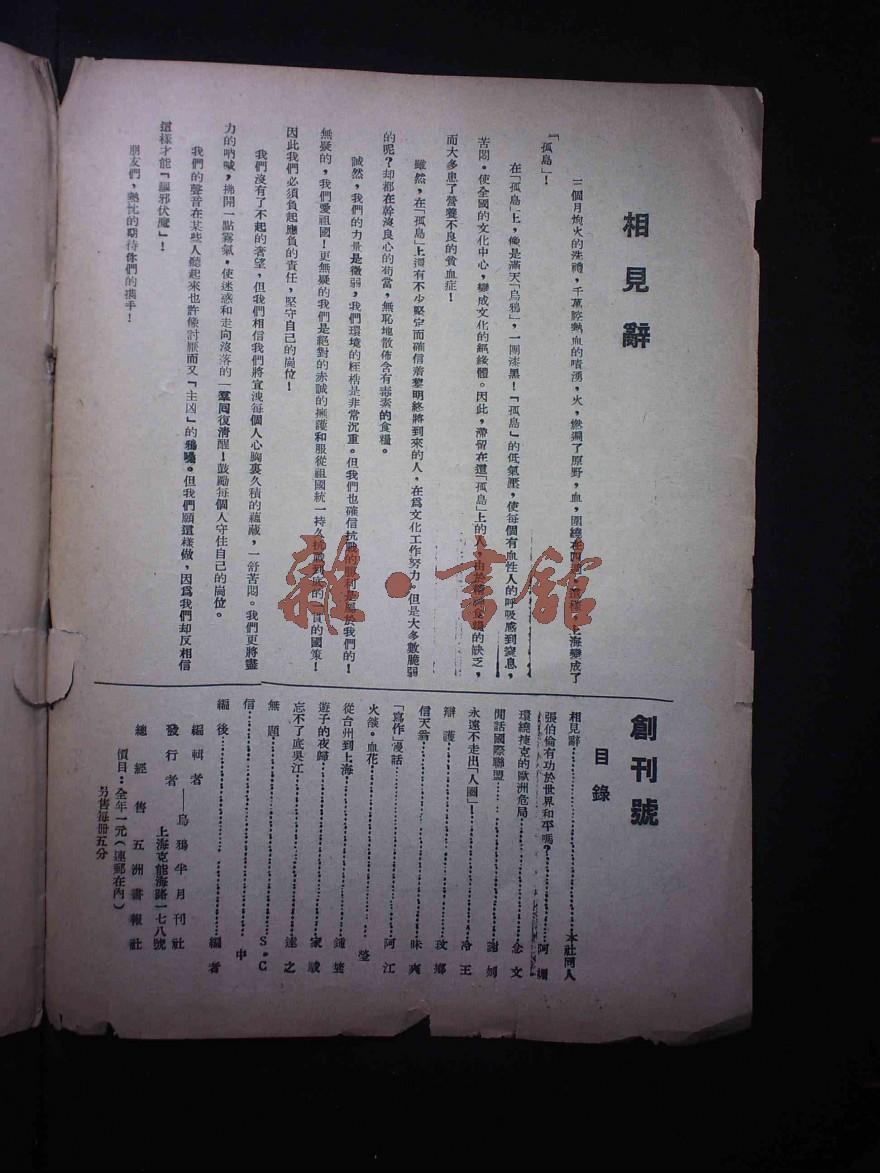 相見辭
三個月炮火的洗禮，千萬腔熱血的噴湧，火，燃遍了原野，血，圍繞在四週。這樣，上海變成了
「孤島」！
在「孤島」上，像是滿天「烏鴉」，一團漆黑！「孤島」的低氣壓，使每個有血性人的呼吸感到窒息，
苦悶。使全國的文化中心，變成文化的絕緣體。因此，滯留在這「孤島」上的人，由於精神食糧的缺乏，
而大多患了營養不良的貧血症！
雖然，在「孤島」上還有不少堅定而確信着黎明終將到來的人，在爲文化工作努力。但是大多數脆弱
的呢？却都在幹沒良心的荀當，無恥地散佈含有毒素的食糧。
誠然，我們的力量是微弱，我們環境的桎梏是非常沉重。但我們也確信抗戰的勝利是屬於我們的！
無疑的，我們愛祖國！更無疑的我們是絕對的赤誠的擁護和服從祖國統一持久抗戰到底的一貫的國策！
因此我們必須負起應負的責任，堅守自己的崗位！
我們沒有了不起的奢望，但我們相信我們將宣洩每個人心胸裏久積的蘊藏，一舒苦悶。我們更將盡
力的吶喊，拂開一點霧氣，使迷惑和走向沒落的一羣囘復清醒！鼓勵每個人守住自己的崗位。
我們的聲音在某些人聽起來也許像討厭而又「主凶」的鴉噪。但我們願這樣做，因爲我們却反相信
這樣才能「驅邪伏魔」！
朋友們，熱忱的期待你們的携手！
創刊號
目錄
相見辭……本社同人
張伯倫有功於世界和平嗎？……阿
環繞捷克的歐洲危局……念文
閒話國際聯盟……謝
永遠不走出「人圈」！……冷王
辯護……玫鄉
信天翁……味爽
「寫作」漫話……阿江
火燄。血花……瑩
從台州到上海……鍾
遊子的夜歸……家
忘不了底吳江……達之
無題……S。C
信……中
編後……編者
編輯者——烏鴉半月刊社
發行者 上海克能海路一七八號
總經售 五洲書報社
價目：全年一元（連郵在內）
另售每冊五分
雜·書館